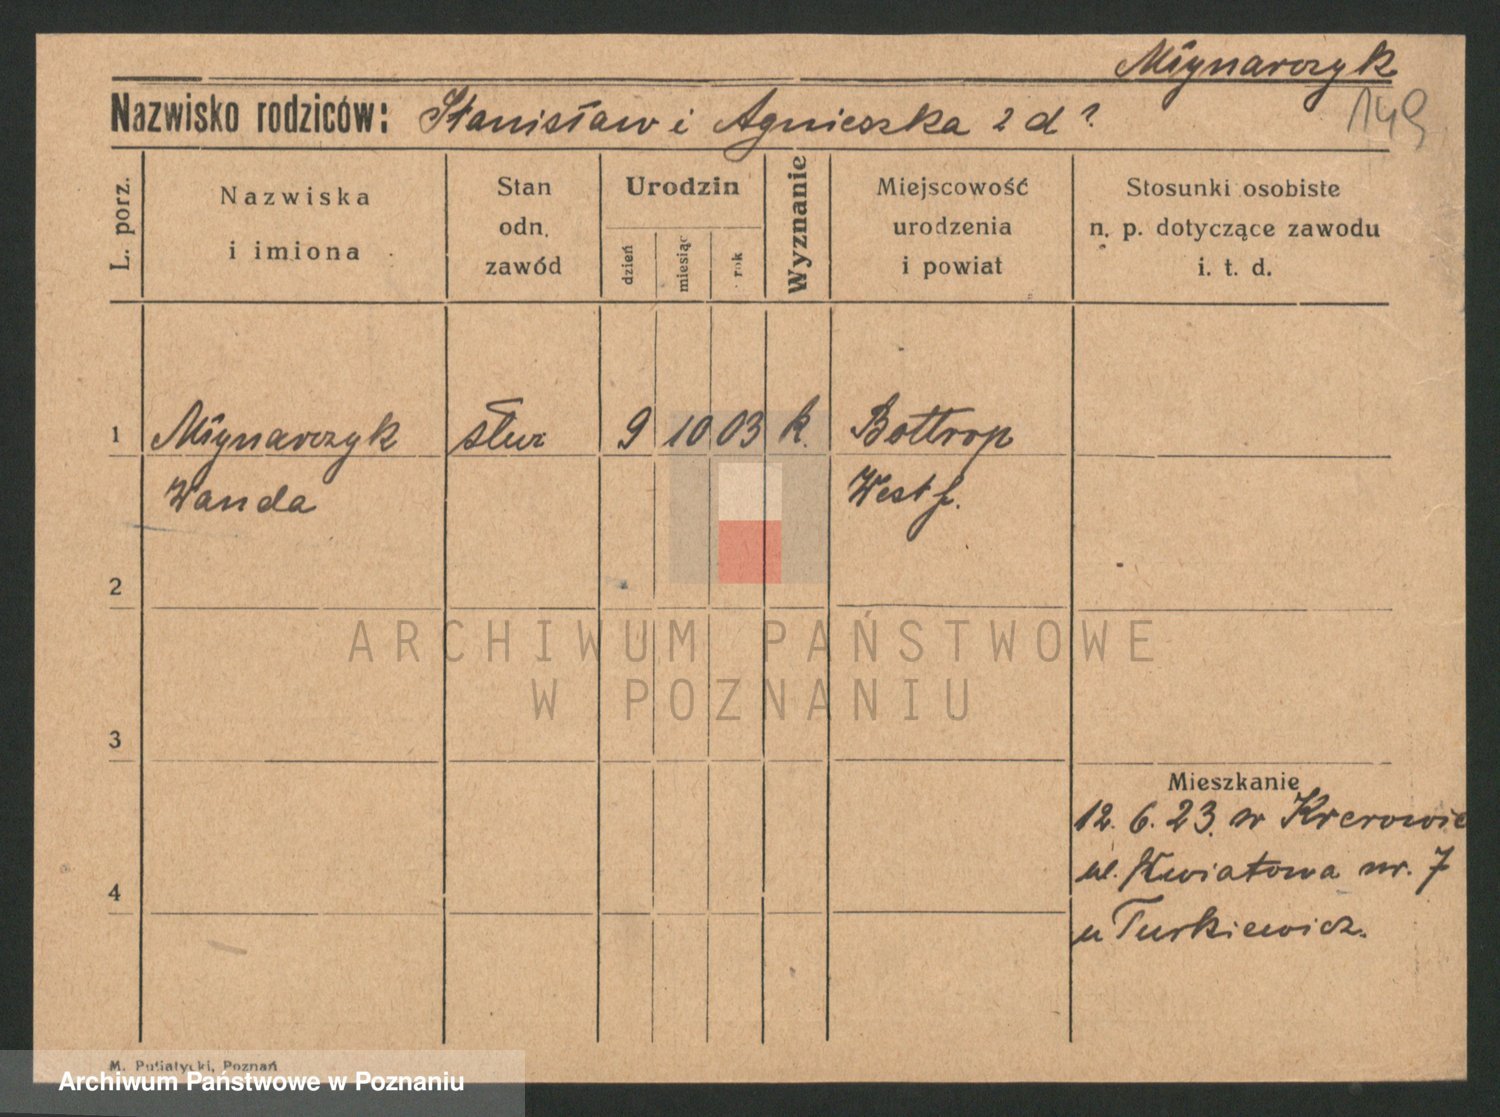 Młynarczyk
149
Nazwisko rodziców: Stanisław i Agnieszka z d ?
L. porz.
Nazwiska
i imiona
Stan
odn.
zawód
Urodzin
dzień
miesiąc
rok
Wyznanie
Miejscowość
urodzenia
i powiat
Stosunki osobiste
n. p. dotyczące zawodu
i. t. d.
1 Młynarczyk służ 9 10 03 k. Bottrop
Wanda Westf.
2
ARCHIWUM PAŃSTWOWE
W POZNANIU
3
Mieszkanie
12. 6. 23. w
ul. Kwiatowa nr. 7
4
u Turkiewicz.
M. Putiatycki, Poznań
Archiwum Państwowe w Poznaniu